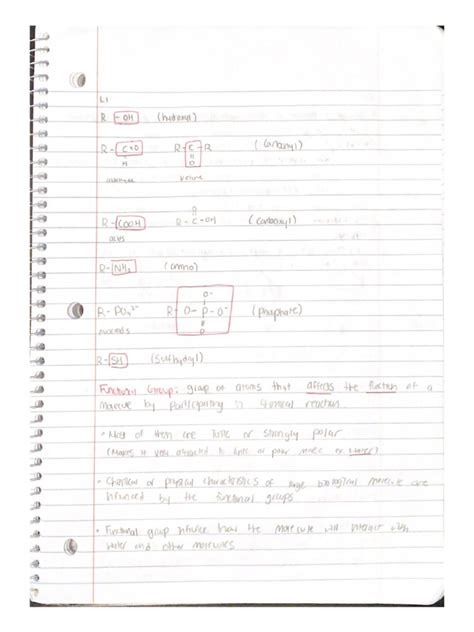 L1
R - OH (hydroxyl)
R - C=O R - C - R (Carbonyl)
H O
aldehyde ketone
R - COOH R - C - OH (carboxyl)
O
acids
R - NH₂ (amino)
O⁻
R - PO₄²⁻ R - O - P - O⁻ (phosphate)
O
R - SH (Sulfhydryl)
Functional Group: group of atoms that affects the function of a
molecule by participating in chemical reaction
• Most of them are ionic or strongly polar
(Makes it very attracted to ionic or polar molec or water)
• Chemical or physical characteristics of large biological molecule are
influenced by the functional groups
• Functional group influence how the molecule will interact with
water and other molecules